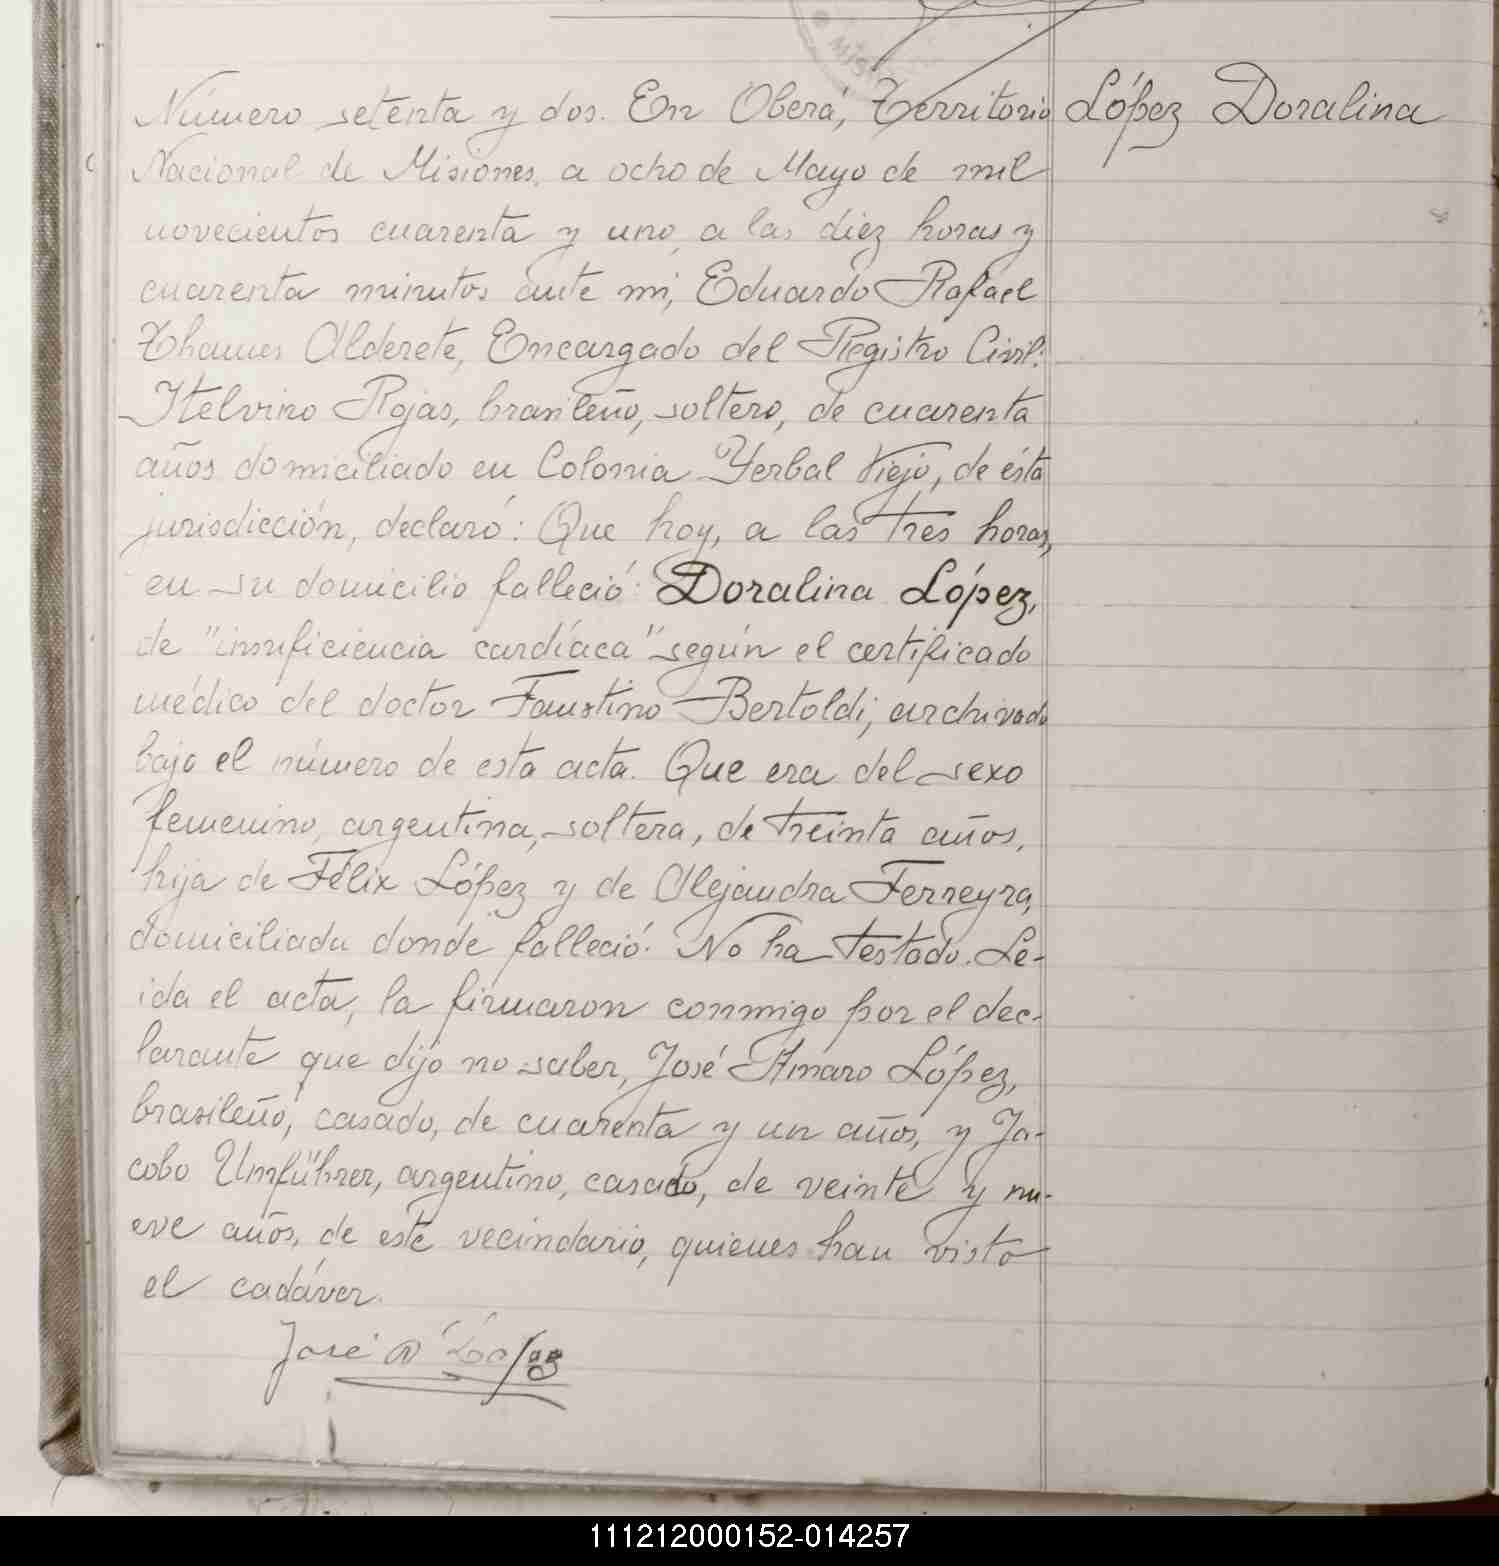 MIS
Número setenta y dos. En Oberá, Territorio
López Doralina
Nacional de Misiones, a ocho de Mayo de mil
novecientos cuarenta y uno, a las diez horas y
cuarenta minutos ante mi, Eduardo Rafael
Thames Alderete, Encargado del Registro Civil:
Itelvino Rojas, brasileño, soltero, de cuarenta
años domiciliado en Colonia Yerbal Viejo, de ésta
jurisdicción, declaró: Que hoy, a las tres horas,
en su domicilio falleció: Doralina López,
de "insuficiencia cardíaca" según el certificado
médico del doctor Faustino Bertoldi, archivado
bajo el número de esta acta. Que era del sexo
femenino, argentina, soltera, de treinta años,
hija de Félix López y de Alejandra Ferreyra,
domiciliada donde falleció. No ha testado. Le-
ida el acta, la firmaron conmigo por el dec-
larante que dijo no saber, José Amaro López,
brasileño, casado, de cuarenta y un años, y Ja-
cobo Umführer, argentino, casado, de veinte y nu-
eve años, de este vecindario, quienes han visto
el cadáver.
José A López
111212000152-014257